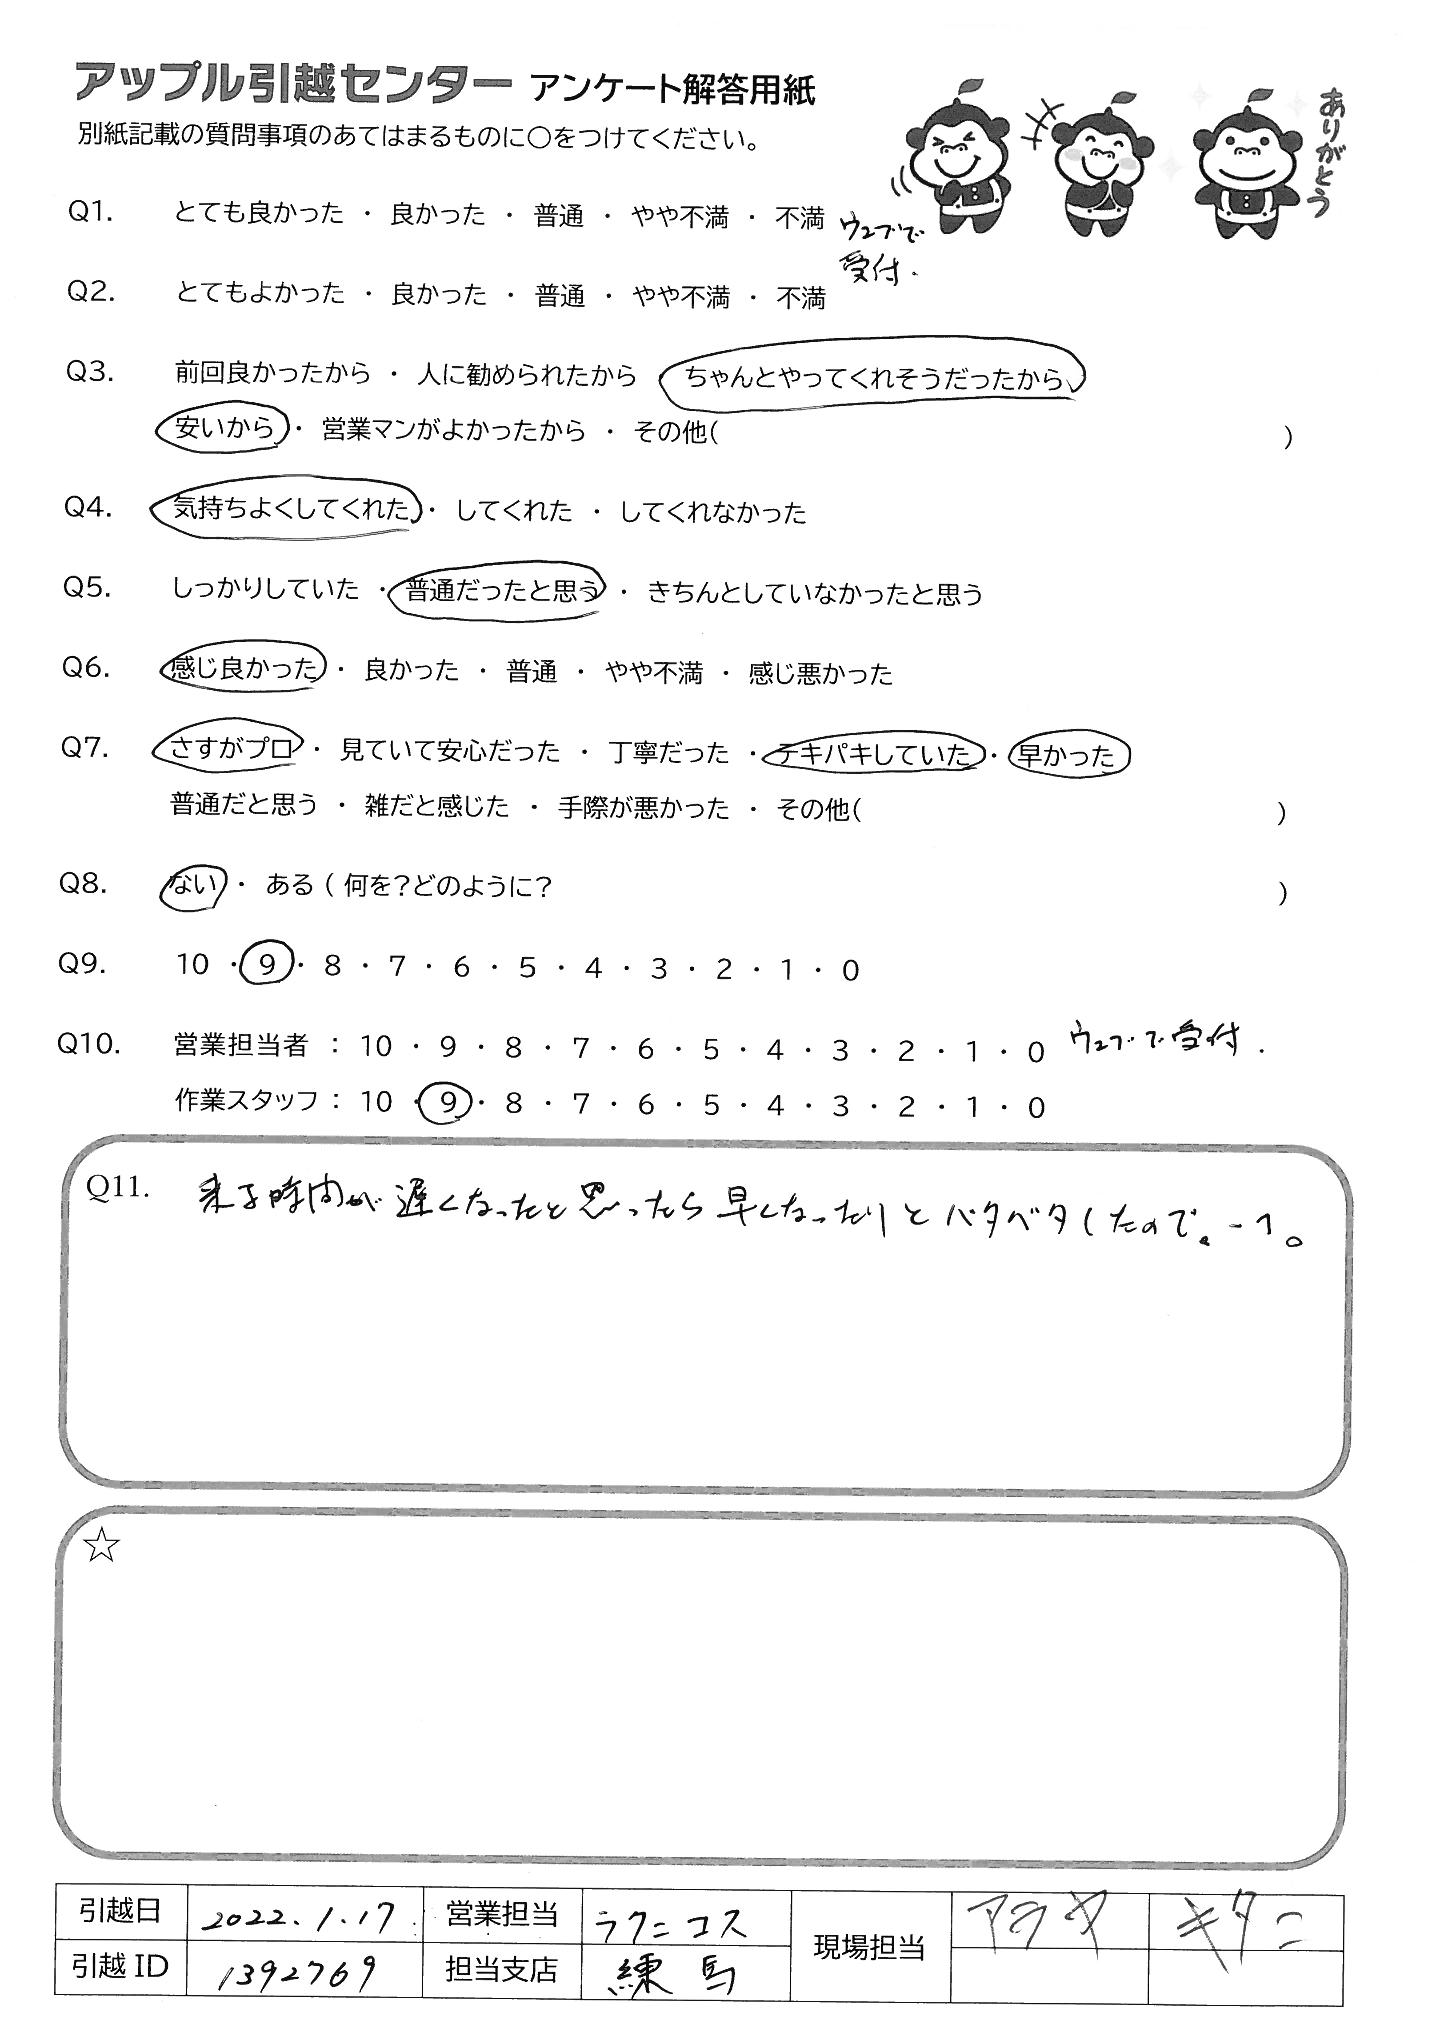 アップル引越センター アンケート解答用紙
別紙記載の質問事項のあてはまるものに○をつけてください。
ありがとう
Q1. とても良かった ・ 良かった ・ 普通 ・ やや不満 ・ 不満 ウェブで
受付.
Q2. とてもよかった ・ 良かった ・ 普通 ・ やや不満 ・ 不満
Q3. 前回良かったから ・ 人に勧められたから ちゃんとやってくれそうだったから
安いから ・ 営業マンがよかったから ・ その他( )
Q4. 気持ちよくしてくれた ・ してくれた ・ してくれなかった
Q5. しっかりしていた ・ 普通だったと思う ・ きちんとしていなかったと思う
Q6. 感じ良かった ・ 良かった ・ 普通 ・ やや不満 ・ 感じ悪かった
Q7. さすがプロ ・ 見ていて安心だった ・ 丁寧だった ・ テキパキしていた ・ 早かった
普通だと思う ・ 雑だと感じた ・ 手際が悪かった ・ その他( )
Q8. ない ・ ある ( 何を?どのように? )
Q9. 10 ・ 9 ・ 8 ・ 7 ・ 6 ・ 5 ・ 4 ・ 3 ・ 2 ・ 1 ・ 0
Q10. 営業担当者 : 10 ・ 9 ・ 8 ・ 7 ・ 6 ・ 5 ・ 4 ・ 3 ・ 2 ・ 1 ・ 0 ウェブで受付.
作業スタッフ : 10 ・ 9 ・ 8 ・ 7 ・ 6 ・ 5 ・ 4 ・ 3 ・ 2 ・ 1 ・ 0
Q11. 来る時間が遅くなったと思ったら早くなったりとバタバタしたので。-1。
☆
引越日 2022.1.17. 営業担当 ラクニコス 現場担当 アラヤ キタニ
引越ID 1392769 担当支店 練馬